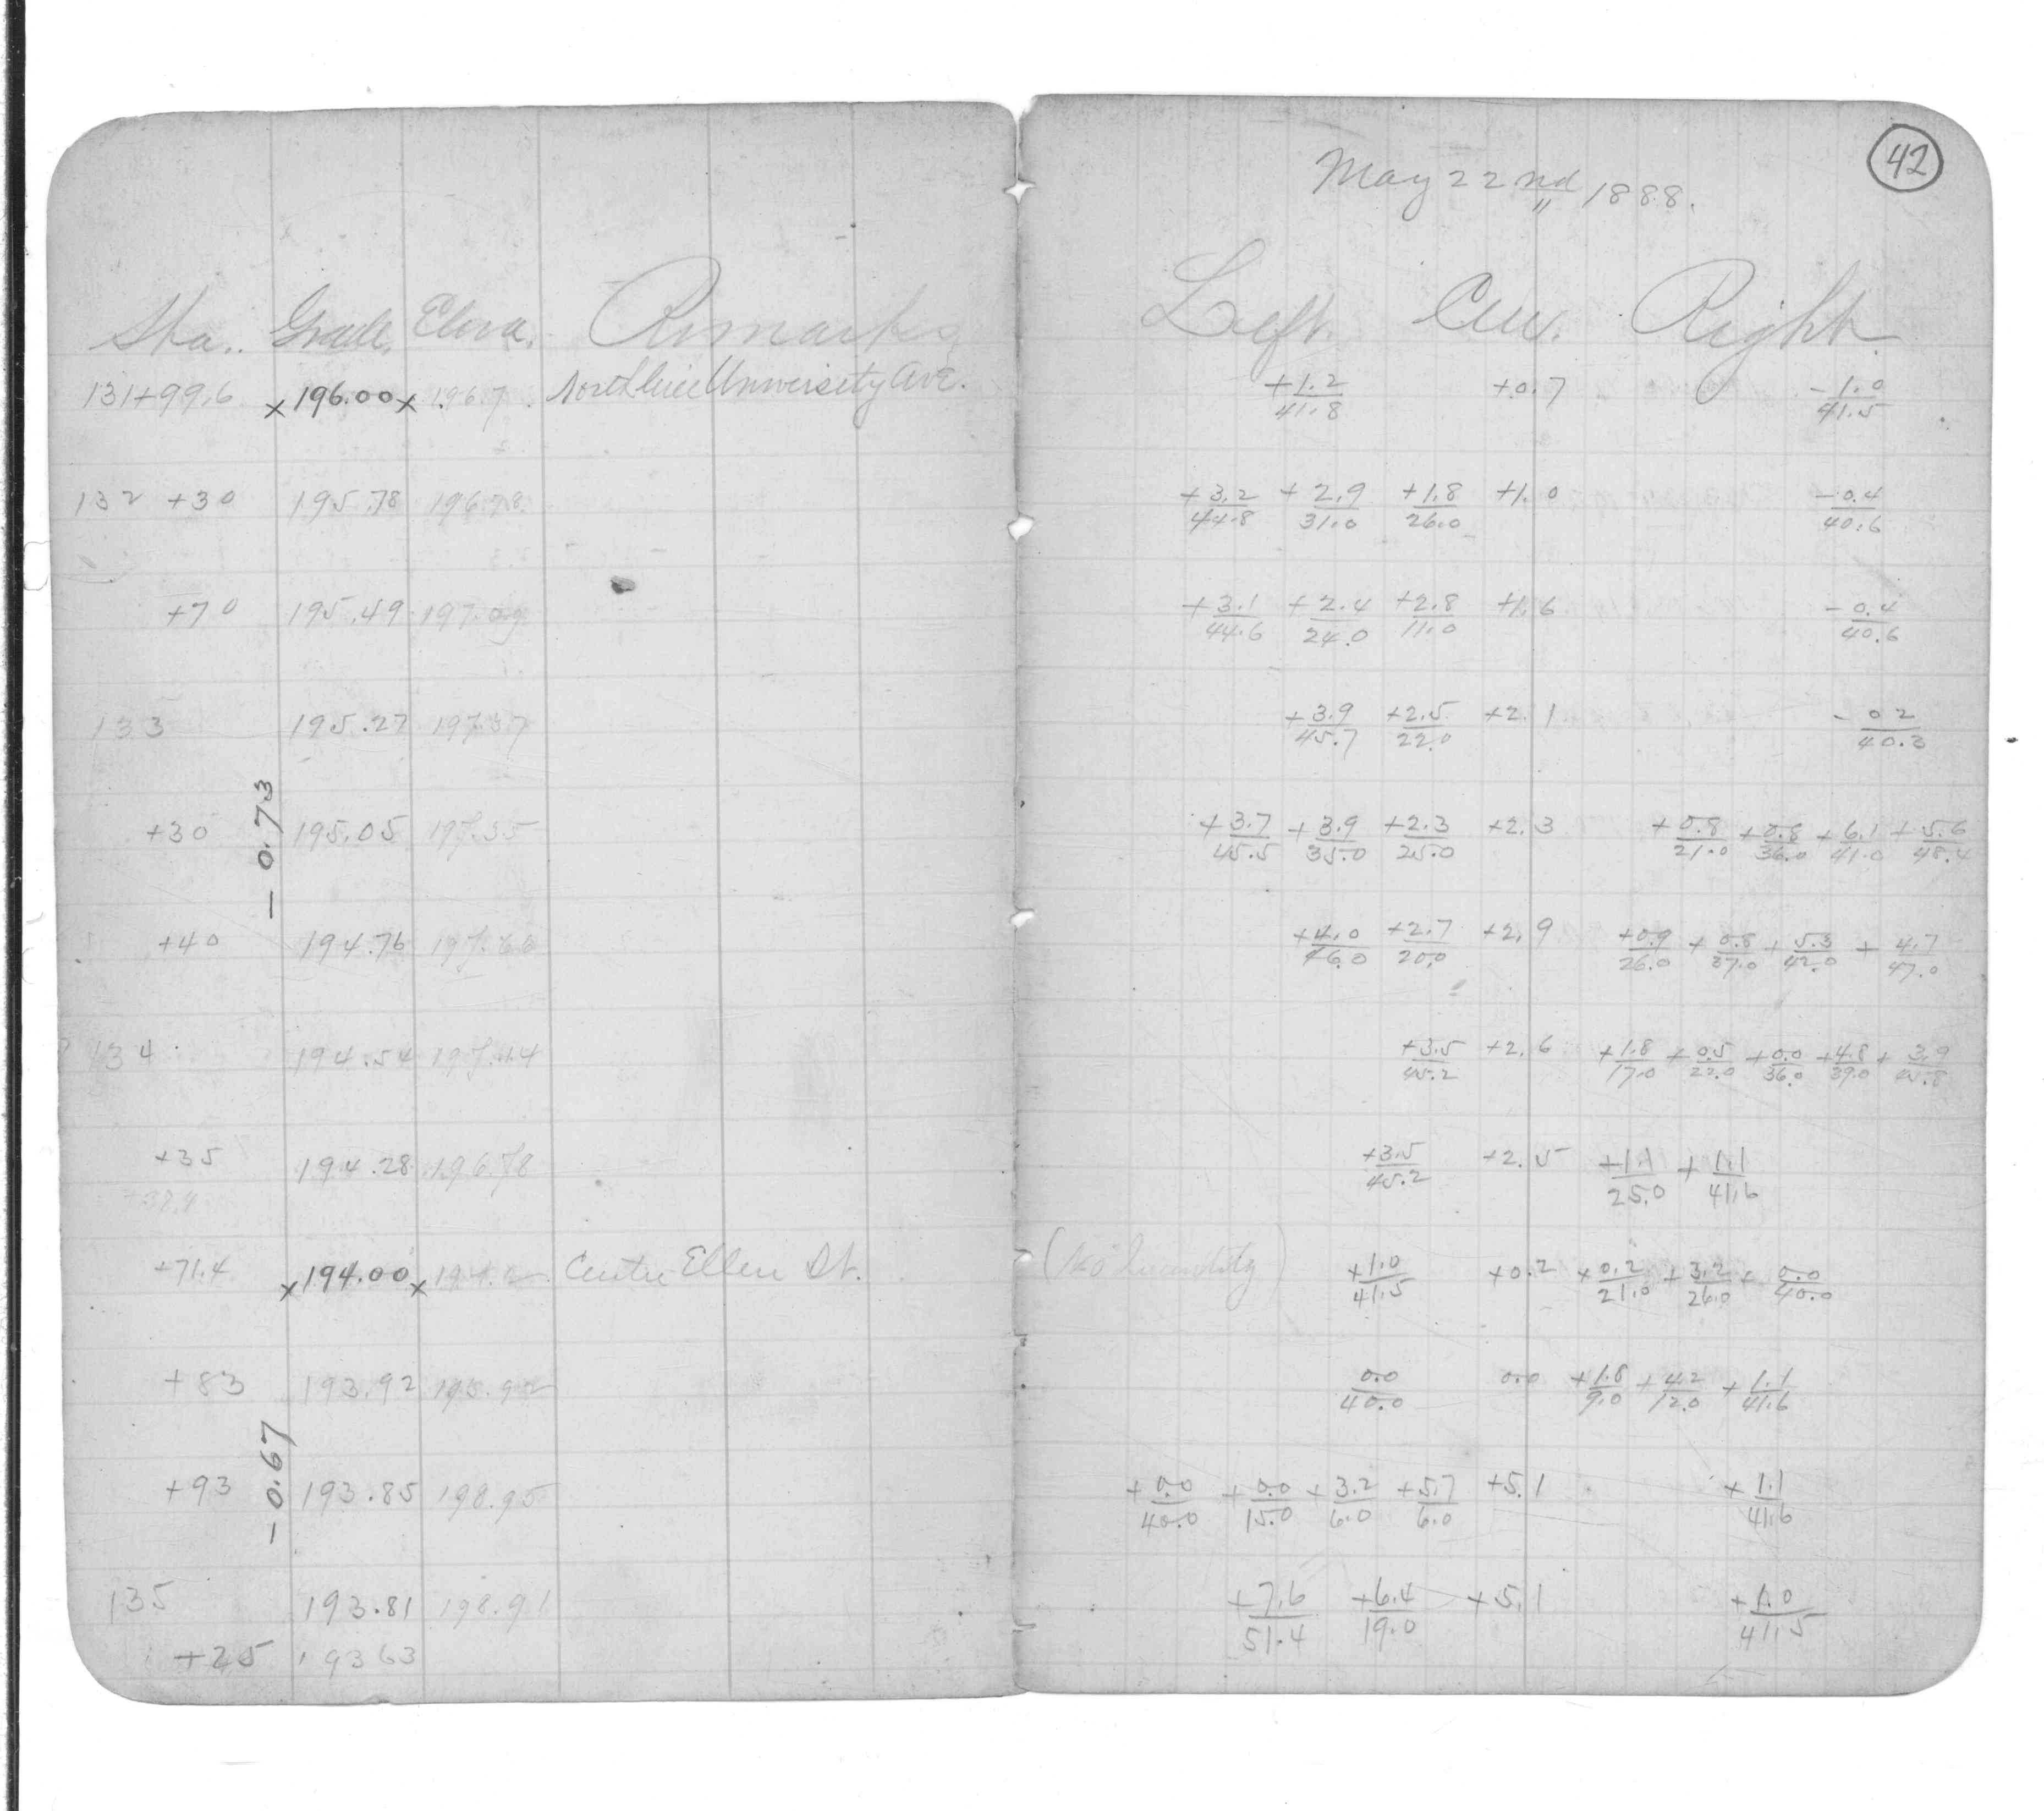 42
May 22nd 1888.
Sta. Grade. Eleva. Remarks
Left. Cen. Right
131+99.6 x 196.00 x 196.7 North line University Ave.
+1.2/41.8 +0.7 -1.0/41.5
132 +30 195.78 196.78
+3.2/44.8 +2.9/31.0 +1.8/26.0 +1.0 -0.4/40.6
+70 195.49 197.09
+3.1/44.6 +2.4/24.0 +2.8/11.0 +1.6 -0.4/40.6
133 195.27 197.37
+3.9/45.7 +2.5/22.0 +2.1 -0.2/40.3
- 0.73
+30 195.05 197.35
+3.7/45.5 +3.9/35.0 +2.3/25.0 +2.3 +0.8/21.0 +0.8/36.0 +6.1/41.0 +5.6/48.4
+40 194.76 197.66
+4.0/46.0 +2.7/20.0 +2.9 +0.9/26.0 +0.8/37.0 +5.3/42.0 +4.7/47.0
134 194.54 197.44
+3.5/45.2 +2.6 +1.8/17.0 +0.5/22.0 +0.0/36.0 +4.8/39.0 +3.9/45.8
+35 194.28 196.78
+37.4
+3.5/45.2 +2.5 +1.1/25.0 +1.1/41.6
+71.4 x 194.00 x 194.2 Centre Ellen St.
+1.0/41.5 +0.2 +0.2/21.0 +3.2/26.0 + 0.0/40.0
+83 193.92 193.92
0.0/40.0 0.0 +1.8/9.0 +4.2/12.0 +1.1/41.6
- 0.67
+93 193.85 198.95
+0.0/40.0 +0.0/15.0 +3.2/6.0 +5.7/6.0 +5.1 +1.1/41.6
135 193.81 198.91
+7.6/51.4 +6.4/19.0 +5.1 +1.0/41.5
+25 193 63